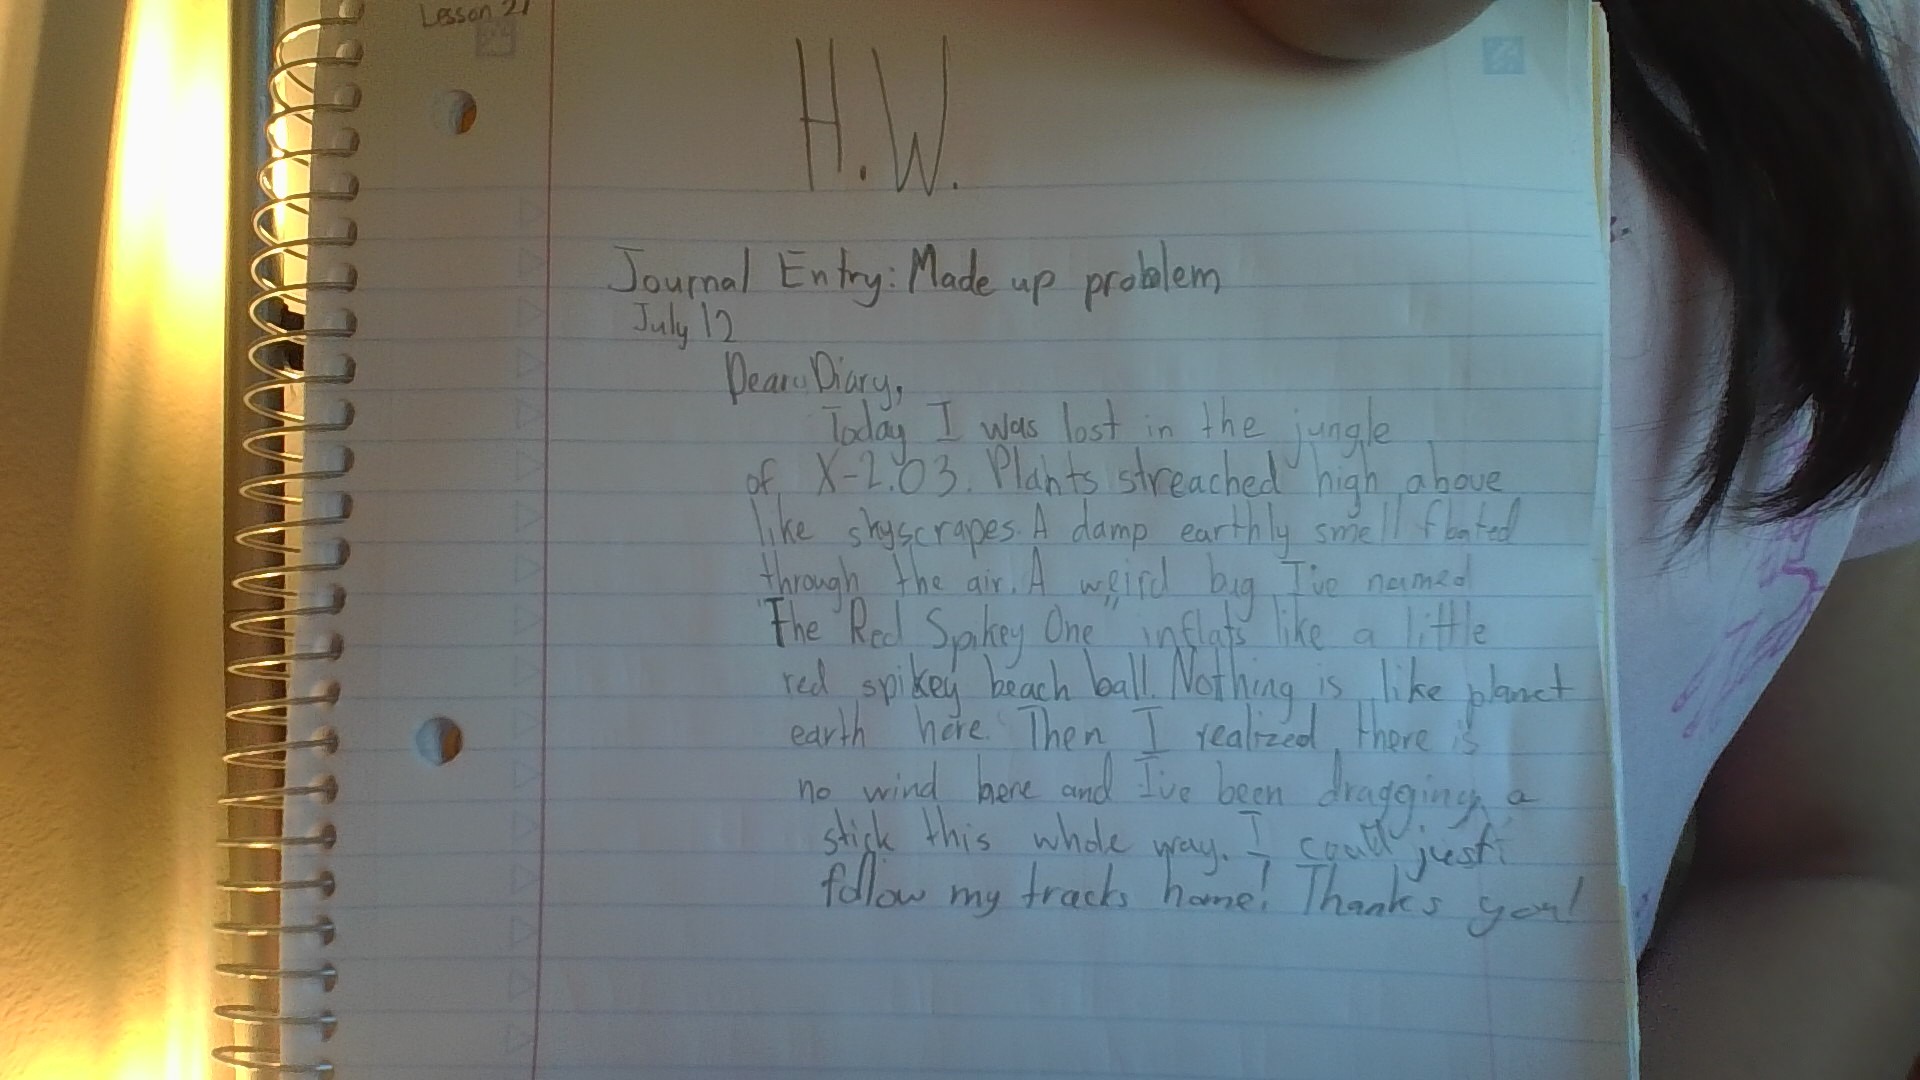 Lesson 21
H.W.
Journal Entry: Made up problem
July 12
Dear Diary,
Today I was lost in the jungle
of X-2.03. Plants streached high above
like skyscrapes. A damp earthly smell floated
through the air. A weird bug I've named
"The Red Spikey One" inflats like a little
red spikey beach ball. Nothing is like planet
earth here. Then I realized there is
no wind here and I've been dragging a
stick this whole way. I could just
follow my tracks home! Thanks you!